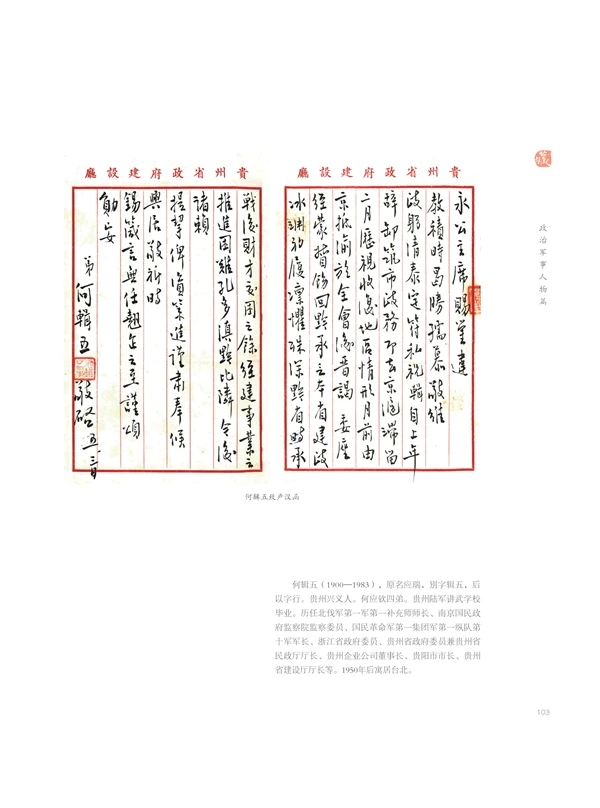 貴州省政府建設廳
永公主席賜鑒違
教積時曷勝孺慕敬維
政躬清泰定符私祝輯自上年
辭卸筑市政務即去京滬端留
二月歷視收復地區情形月前由
京抵渝於全會後晉謁 委座
經蒙指錫回黔承乏本省建政
冰淵初履凜懼殊深黔省財承
貴州省政府建設廳
戰後財才交困之餘經建事業之
推進困難孔多滇黔比鄰今後
諸賴
提挈俾資策進謹肅奉候
興居敬祈時
錫箴言無任翹企之至謹頌
勛安
弟何輯五敬啓 五、三日
何辑五致卢汉函
何辑五（1900—1983），原名应瑞，别字辑五，后
以字行。贵州兴义人。何应钦四弟。贵州陆军讲武学校
毕业。历任北伐军第一军第一补充师师长、南京国民政
府监察院监察委员、国民革命军第一集团军第一纵队第
十军军长、浙江省政府委员、贵州省政府委员兼贵州省
民政厅厅长、贵州企业公司董事长、贵阳市市长、贵州
省建设厅厅长等。1950年后寓居台北。
政治军事人物篇
103